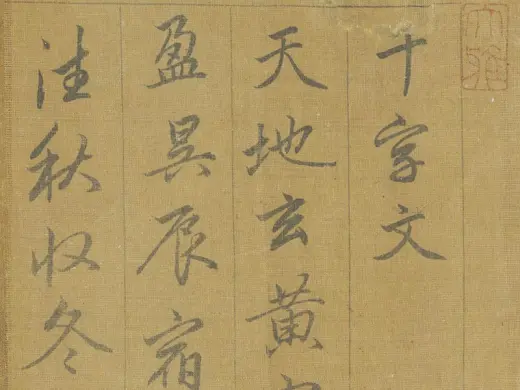 大雅
千字文
天地玄黄
盈昃辰宿
往秋收冬